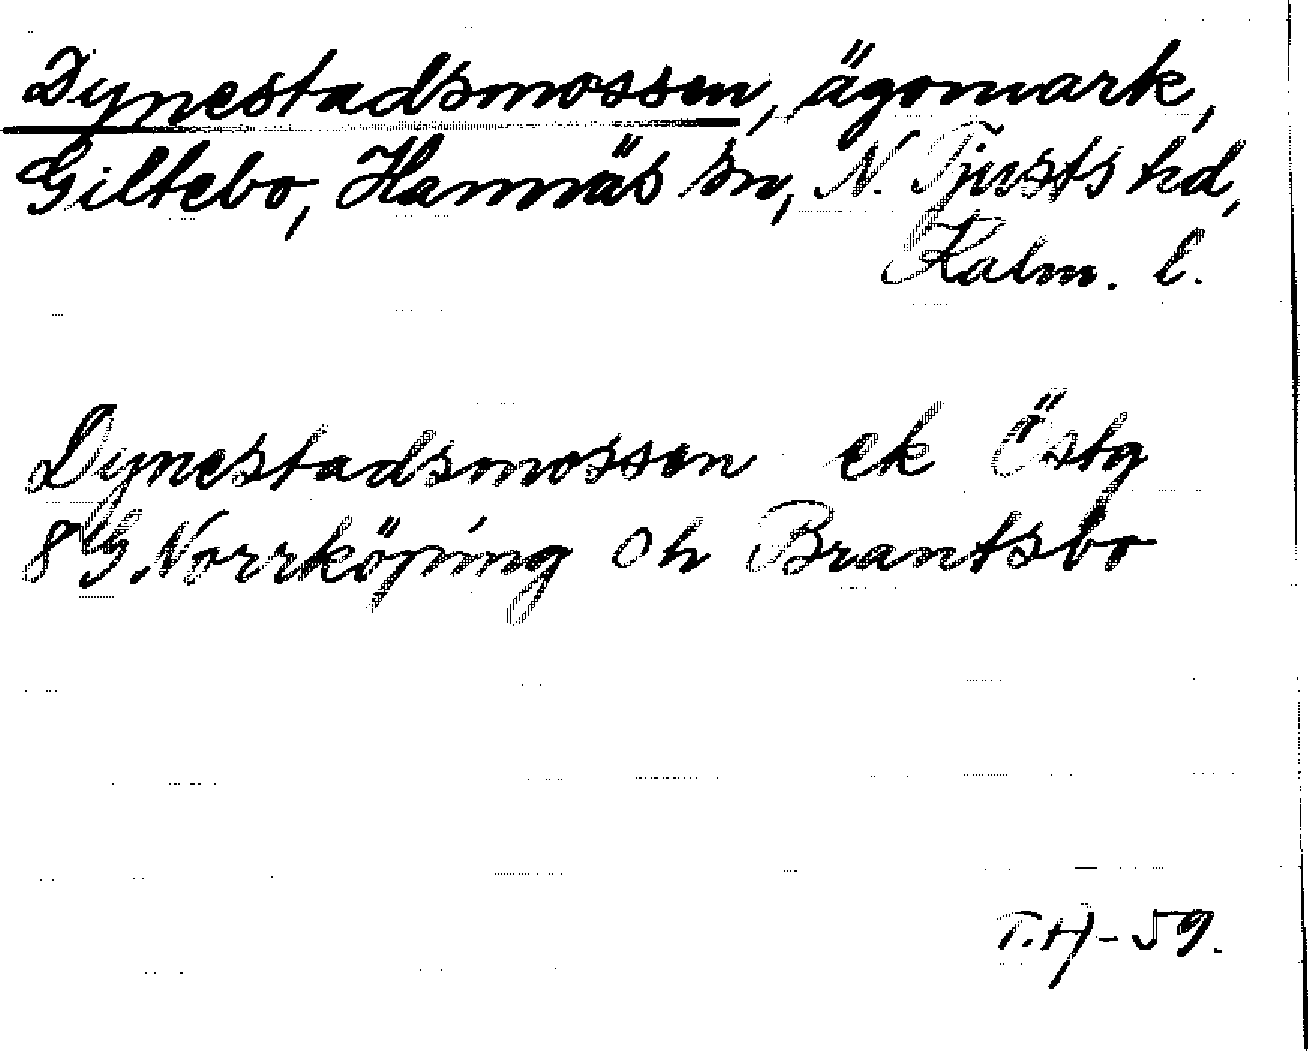 Dynestadsmossen, ägomark,
Giltebo, Hannäs sn, N. Tjusts hd,
Kalm. l.
Dynestadsmossen ek Östg
8 G Norrköping Ch Brantsbo
T.H-59.